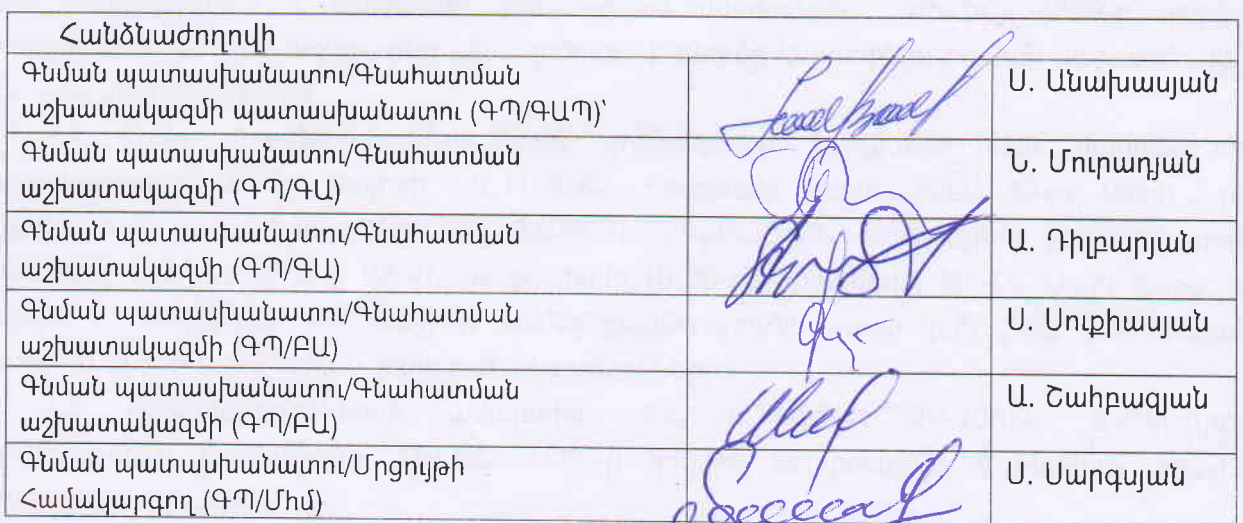 Հանձնաժողովի
Գնման պատասխանատու/Գնահատման
աշխատակազմի պատասխանատու (ԳՊ/ԳԱՊ)՝
Ս. Անախասյան
Գնման պատասխանատու/Գնահատման
աշխատակազմի (ԳՊ/ԳԱ)
Ն. Մուրադյան
Գնման պատասխանատու/Գնահատման
աշխատակազմի (ԳՊ/ԳԱ)
Ա. Դիլբարյան
Գնման պատասխանատու/Գնահատման
աշխատակազմի (ԳՊ/ԲԱ)
Ս. Սուքիասյան
Գնման պատասխանատու/Գնահատման
աշխատակազմի (ԳՊ/ԲԱ)
Ա. Շահբազյան
Գնման պատասխանատու/Մրցույթի
Համակարգող (ԳՊ/Միմ)
Ս. Սարգսյան